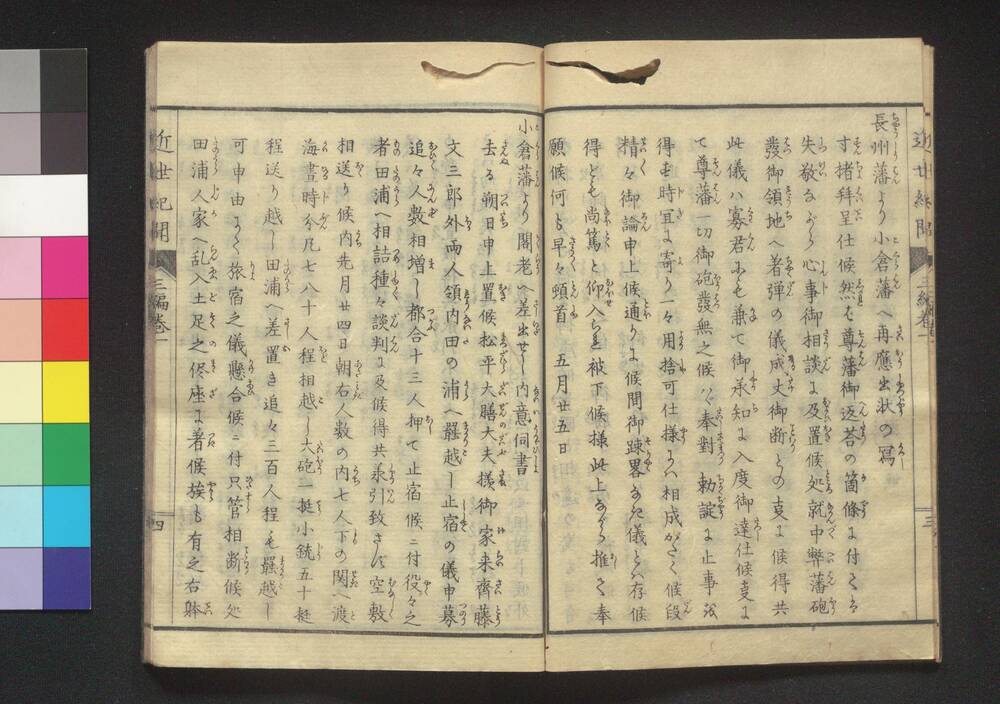 近世紀聞
三編卷一
三
長州藩より小倉藩へ再應出狀の寫
寸楮拜呈仕候然ば尊藩御返荅の箇條に付てハ
失敬ながら心事御相談に及置候処就中弊藩砲
發御領地へ着彈の儀成丈御断との支に候得共
此儀ハ寡君にも兼て御承知に入度御達仕候支に
て尊藩一切御砲發無之候ハゞ奉對 勅諚に止事
得ず時宜に寄り一々用捨可仕樣にハ相成がたく候段
精々御諭申上候通りに候間御踈畧なき儀とハ存候
得ども尚篤と仰入られ被下候樣此上ながら推て奉
願候何も早々頓首 五月廿五日
小倉藩より閣老へ差出せし内意伺書
去る朔日申上置候松平大膳大夫樣御家来齊藤
文三郎外両人領内田の浦へ罷越し止宿の儀申募
追々人數相増し都合十三人押て止宿候ニ付役々之
者田浦へ相詰種々談判に及候得共承引致さず空敷
相送り候内先月廿四日朝右人数の内七人下の関へ渡
海晝時分凡七八十人程相越し大砲一挺小銃五十挺
程送り越し田浦へ差置き追々三百人程も罷越し
可申由にて旅宿之儀懸合候ニ付只管相断候処
田浦人家へ乱入土足之侭座に著候族も有之右躰
近世紀聞
三編卷一
四